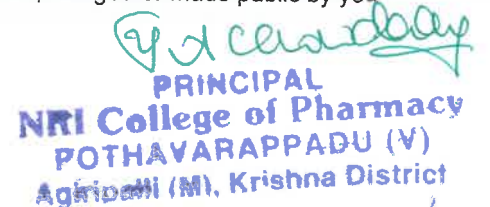 made public by you
PRINCIPAL
NRI College of Pharmacy
POTHAVARAPPADU (V)
Agiripalli (M), Krishna District